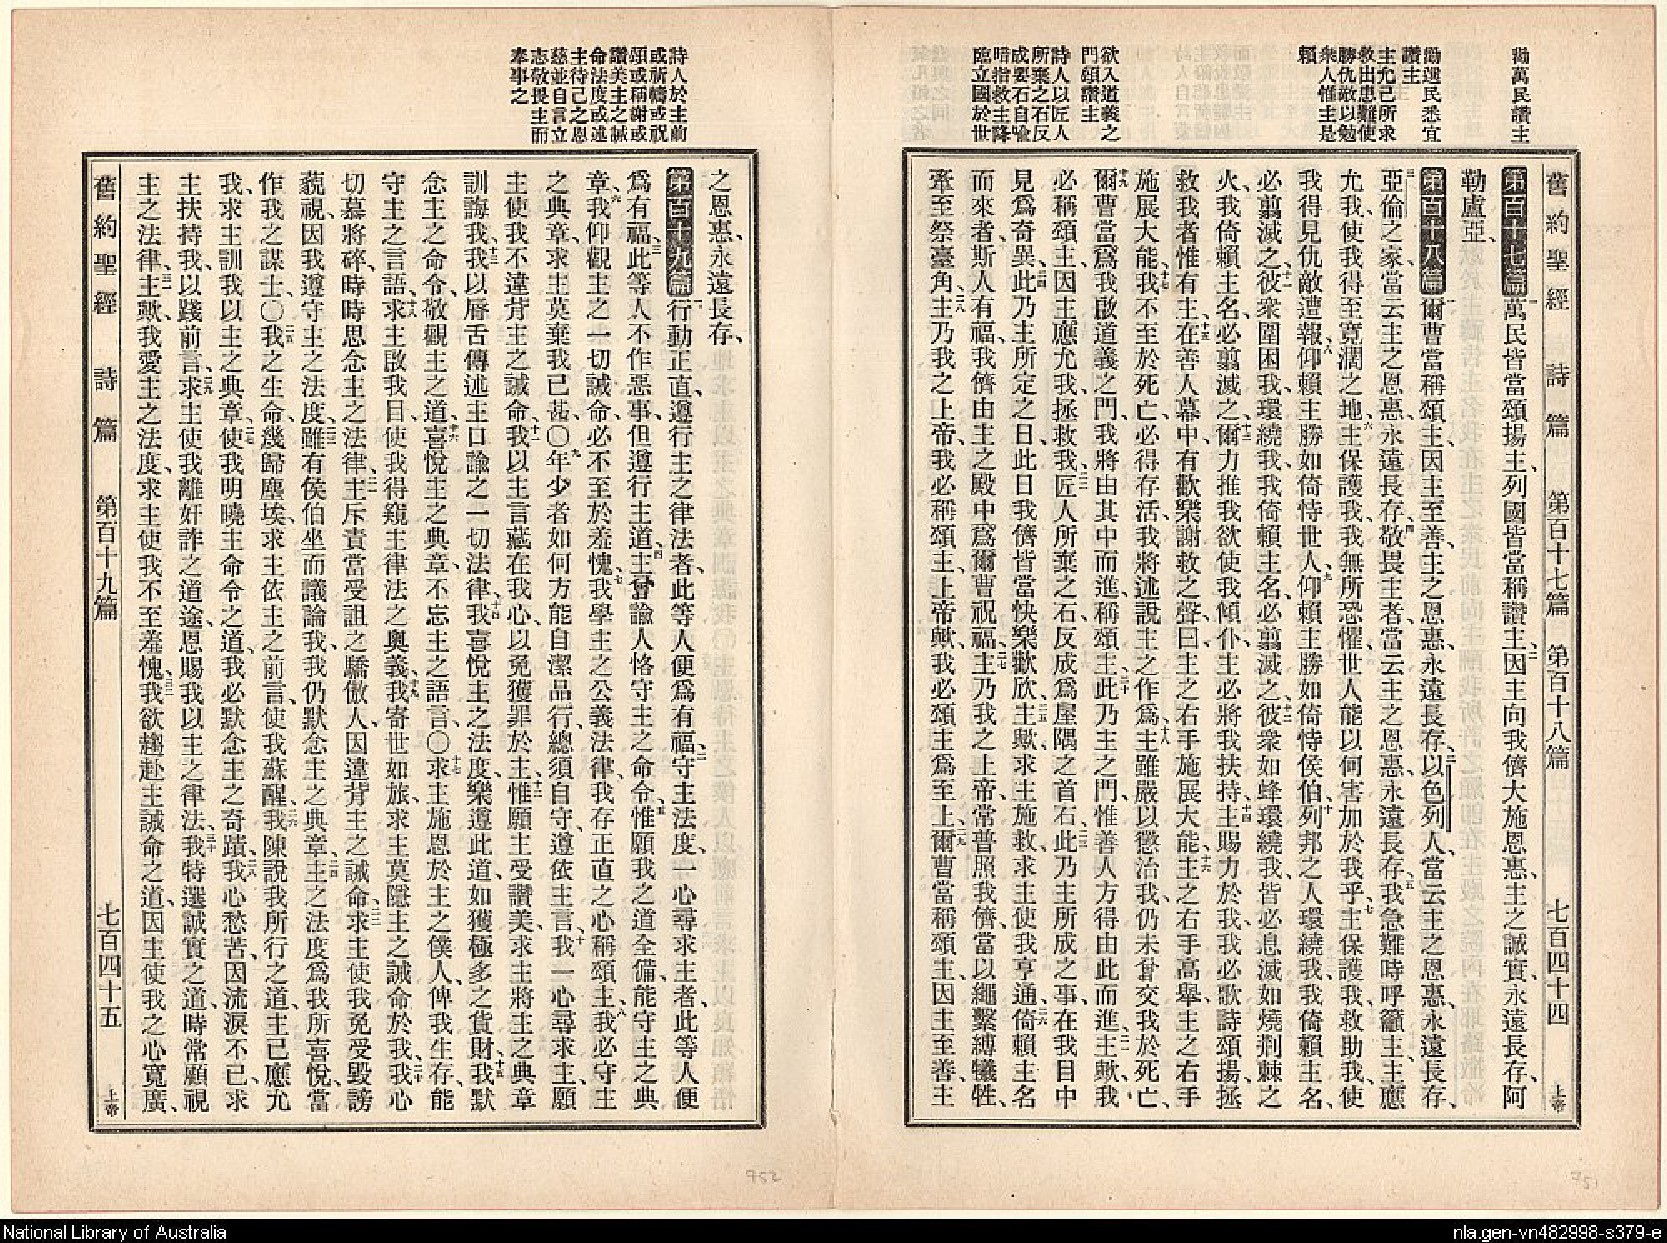 舊約聖經 詩篇 第百十七篇 第百十八篇 七百四十四 上帝
勸萬民讚主
勸選民悉宜
讚主
主允己所求
救出患難使
勝仇敵以勉
衆人惟主是
賴
欲入道義之
門頌讚主
詩人以匠人
所棄之石反
成要石自喻
暗指救主降
臨立國於世
第百十七篇 萬民皆當頌揚主、列國皆當稱讚主、因主向我儕大施恩惠、主之誠實、永遠長存、阿
勒盧亞、
第百十八篇 爾曹當稱頌主、因主至善、主之恩惠、永遠長存、以色列人當云主之恩惠、永遠長存、
亞倫之家當云主之恩惠、永遠長存、敬畏主者當云主之恩惠、永遠長存、我急難時呼籲主、主應
允我、使我得至寬濶之地、主保護我、我無所恐懼、世人能以何害加於我乎、主保護我、救助我、使
我得見仇敵遭報、仰賴主、勝如倚恃世人、仰賴主、勝如倚恃侯伯、列邦之人環繞我、我倚賴主名、
必翦滅之、彼衆圍困我、環繞我、我倚賴主名、必翦滅之、彼衆如蜂環繞我、皆必息滅、如燒荆棘之
火、我倚賴主名、必翦滅之、爾力推我、欲使我傾仆、主必將我扶持、主賜力於我、我必歌詩頌揚、拯
救我者惟有主、在善人幕中、有歡樂謝救之聲曰、主之右手施展大能、主之右手高舉、主之右手
施展大能、我不至於死亡、必得存活、我將述說主之作爲、主雖嚴以懲治我、仍未嘗交我於死亡、
爾曹當爲我啟道義之門、我將由其中而進、稱頌主、此乃主之門、惟善人方得由此而進、主歟、我
必稱頌主、因主應允我、拯救我、匠人所棄之石、反成爲屋隅之首石、此乃主所成之事、在我目中
見爲奇異、此乃主所定之日、此日我儕皆當快樂歡欣、主歟、求主施救、求主使我亨通、倚賴主名
而來者、斯人有福、我儕由主之殿中爲爾曹祝福、主乃我之上帝、常普照我儕、當以繩繫縛犧牲、
牽至祭臺角、主乃我之上帝、我必稱頌主、上帝歟、我必頌主爲至上、爾曹當稱頌主、因主至善、主
詩人於主前
或祈禱或祝
頌或稱謝或
讚美主之誡
命法度或述
主待己之恩
慈並自言立
志敬畏主而
奉事之
之恩惠、永遠長存、
第百十九篇 行動正直、遵行主之律法者、此等人便爲有福、守主法度、一心尋求主者、此等人便
爲有福、此等人不作惡事、但遵行主道、主曾諭人恪守主之命令、惟願我之道全備、能守主之典
章、我仰觀主之一切誡命、必不至於羞愧、我學主之公義法律、我存正直之心稱頌主、我必守主
之典章、求主莫棄我已甚、○年少者如何方能自潔品行、總須自守、遵依主言、我一心尋求主、願
主使我不違背主之誡命、我以主言藏在我心、以免獲罪於主、惟願主受讚美、求主將主之典章
訓誨我、我以唇舌傳述主口諭之一切法律、我喜悅主之法度、樂遵此道、如獲極多之貨財、我默
念主之命令、敬觀主之道、喜悅主之典章、不忘主之語言、○求主施恩於主之僕人、俾我生存、能
守主之言語、求主啟我目、使我得窺主律法之奧義、我寄世如旅、求主莫隱主之誡命於我、我心
切慕將碎、時時思念主之法律、主斥責當受詛之驕傲人、因違背主之誡命、求主使我免受毀謗
藐視、因我遵守主之法度、雖有侯伯坐而議論我、我仍默念主之典章、主之法度爲我所喜悅、當
作我之謀士、○我之生命、幾歸塵埃、求主依主之前言、使我蘇醒、我陳說我所行之道、主已應允
我、求主訓我以主之典章、使我明曉主命令之道、我必默念主之奇蹟、我心愁苦、因流淚不已、求
主扶持我、以踐前言、求主使我離奸詐之道途、恩賜我以主之律法、我特選誠實之道、時常顧視
主之法律、主歟、我愛主之法度、求主使我不至羞愧、我欲趨赴主誡命之道、因主使我之心寬廣、
舊約聖經 詩篇 第百十九篇 七百四十五 上帝
752
751
National Library of Australia
nla.gen-vn482998-s379-e